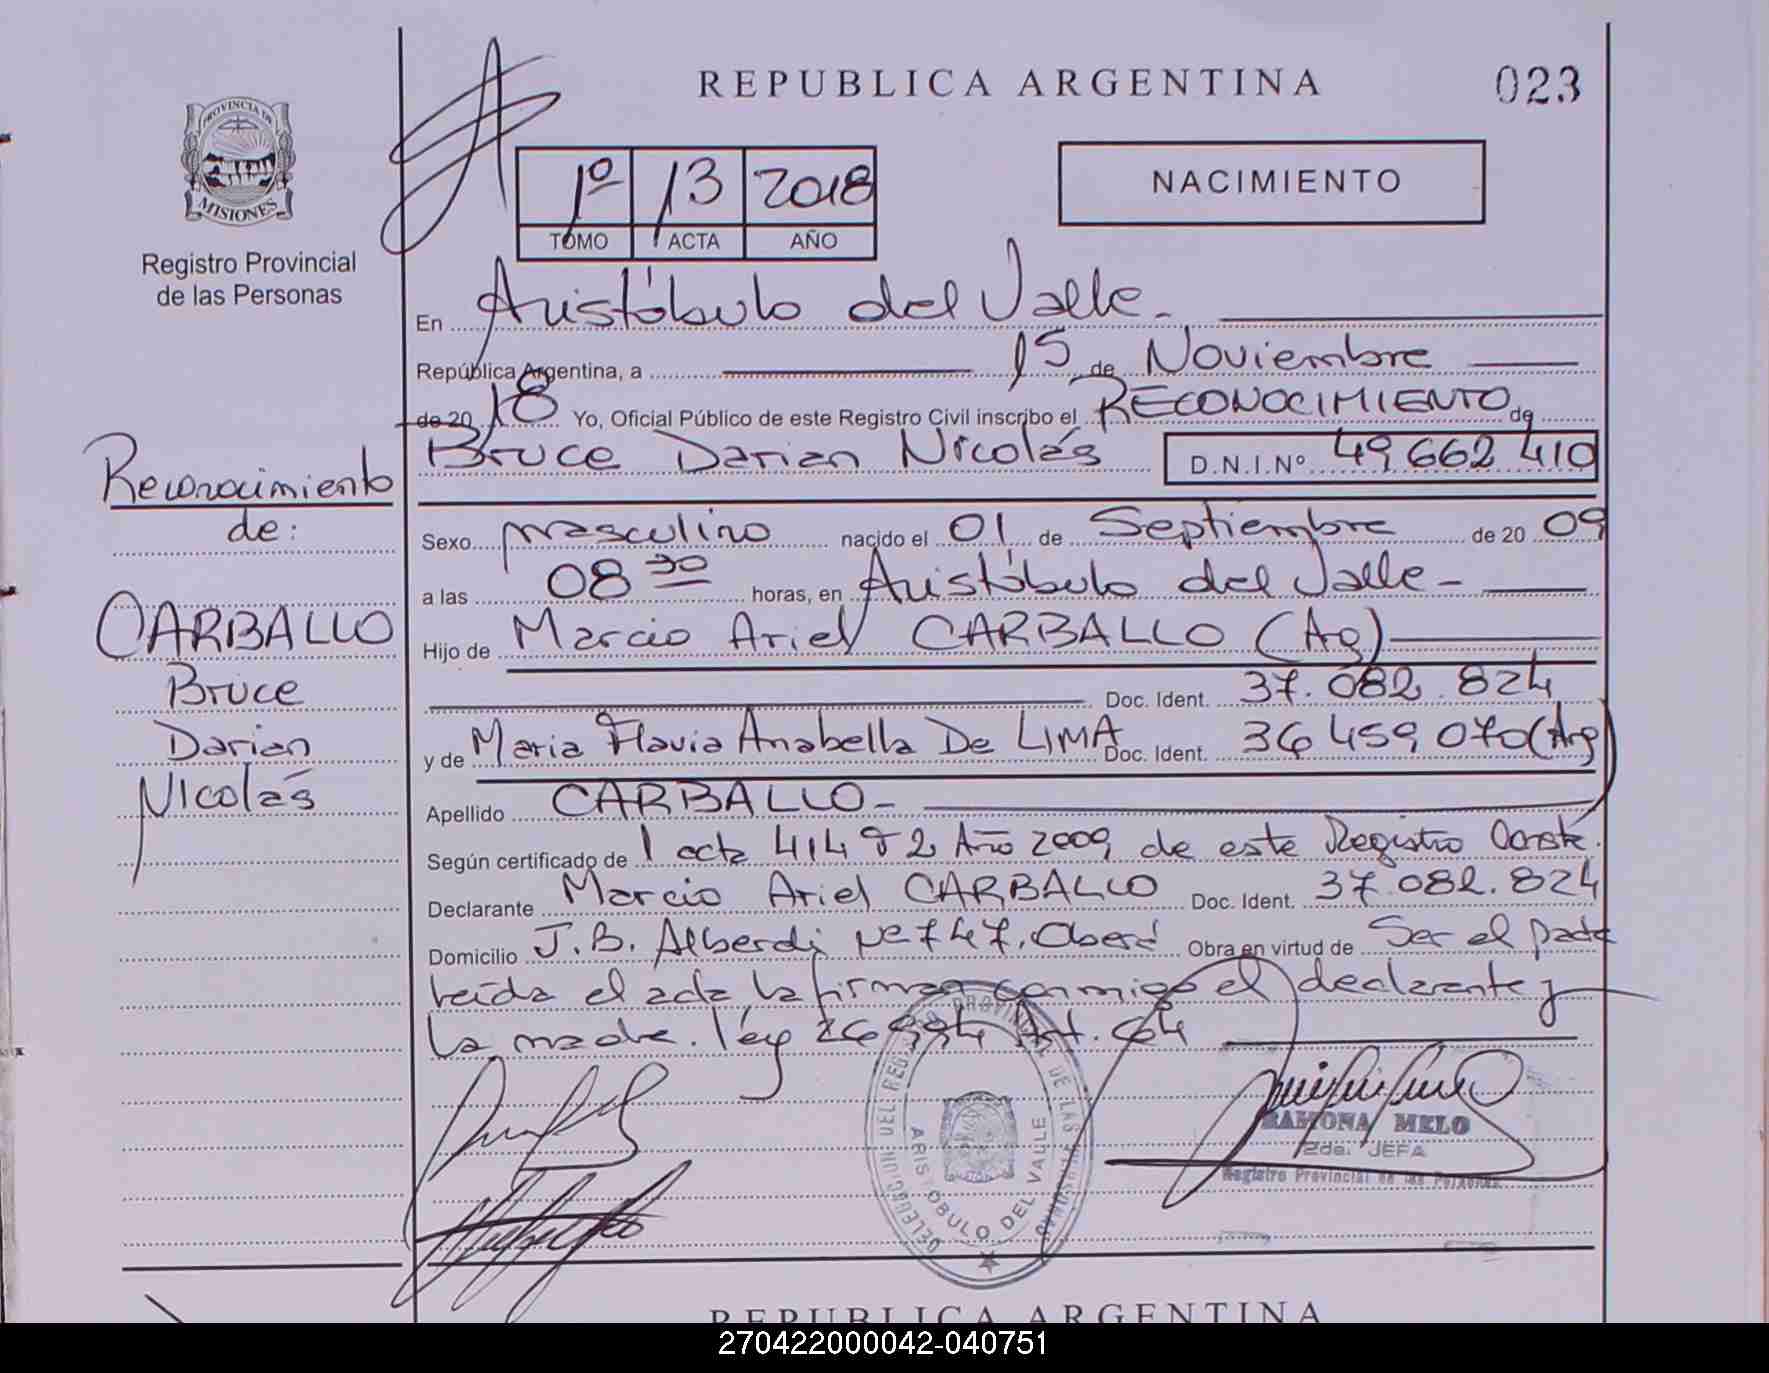 REPUBLICA ARGENTINA
023
PROVINCIA DE
MISIONES
Registro Provincial
de las Personas
1º 13 2018
TOMO ACTA AÑO
NACIMIENTO
En Aristóbulo del Valle.
República Argentina, a 15 de Noviembre
de 20 18 Yo, Oficial Público de este Registro Civil inscribo el RECONOCIMIENTO de
Bruce Darian Nicolás D.N.I.Nº 49 662 410
Sexo masculino nacido el 01 de Septiembre de 20 09
a las 08 30 horas, en Aristóbulo del Valle-
Hijo de Marcio Ariel CARBALLO (Ag)
Doc. Ident. 37.082.824
y de Maria Flavia Anabella De LIMA Doc. Ident. 36 459 070 (Arg)
Apellido CARBALLO-
Según certificado de 1 acta 414 T2 Año 2009 de este Registro Conste.
Declarante Marcio Ariel CARBALLO Doc. Ident. 37.082.824
Domicilio J.B. Alberdi Nº 747, Oberá Obra en virtud de Ser el padre
leída el acta la firman conmigo el declarante y
la madre. ley 26994 Art. 64
Reconocimiento
de:
CARBALLO
Bruce
Darian
Nicolás
DELEGACION DEL REGISTRO PROVINCIAL DE LAS PERSONAS
ARISTOBULO DEL VALLE
RAMONA MELO
2da. JEFA
Registro Provincial de las Personas
REPUBLICA ARGENTINA
270422000042-040751